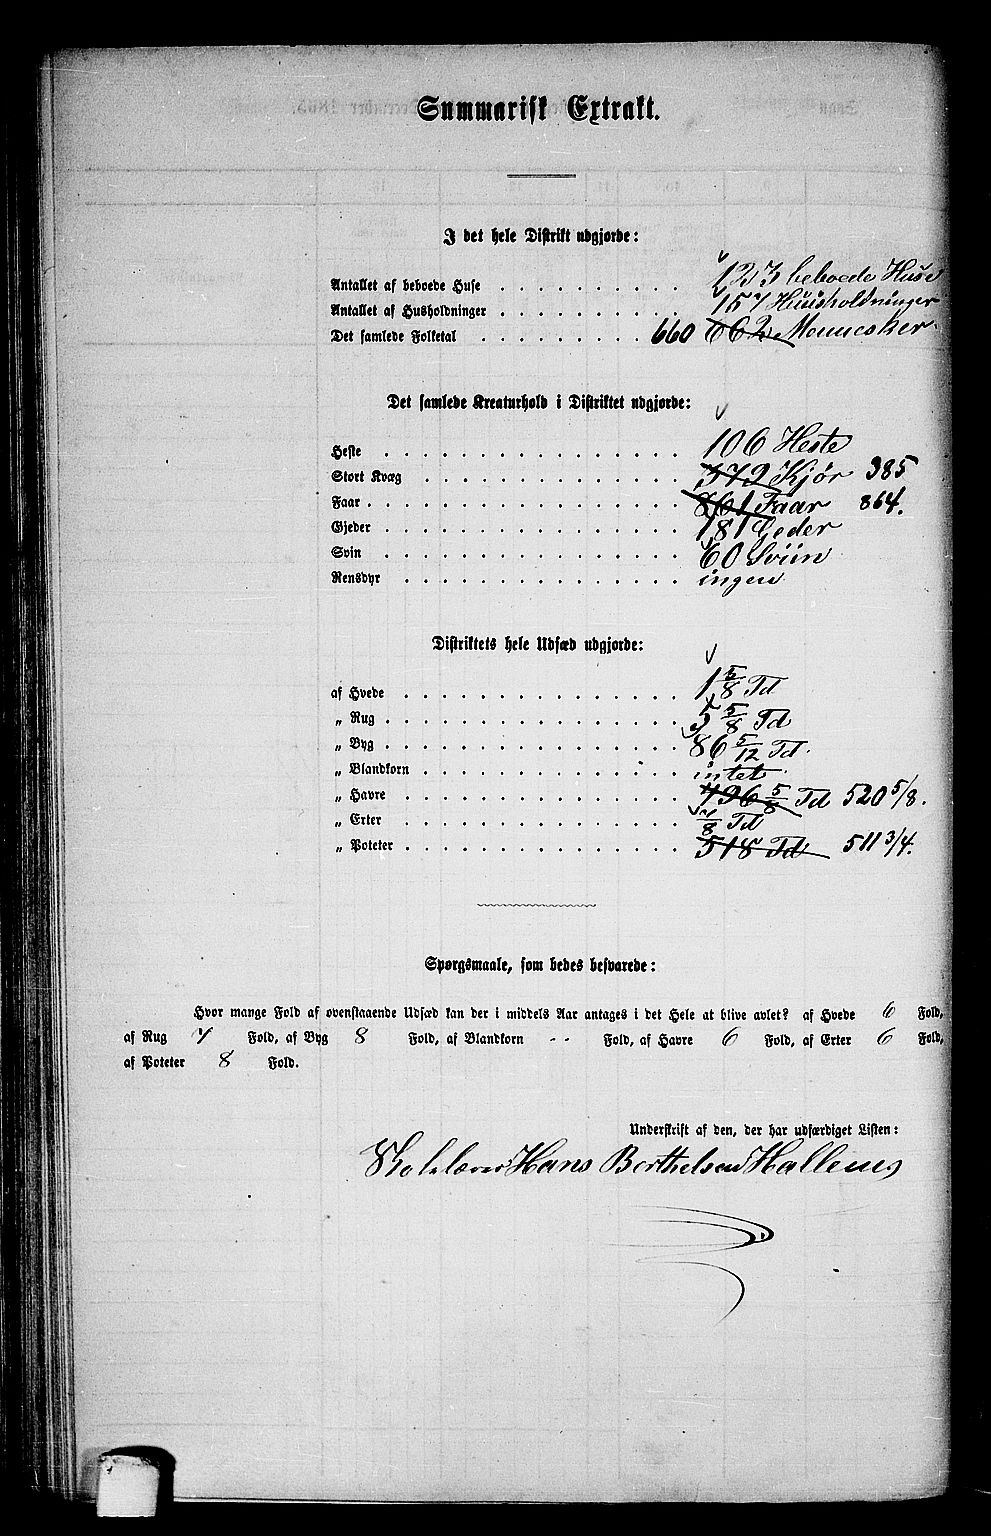 Summarisk Extrakt.
I det hele Distrikt udgjorde:
Antallet af beboede Huse . . . . . . . . . . 123 beboede Huse
Antallet af Husholdninger . . . . . . . . . . 157 Huusholdninger
Det samlede Folketal . . . . . . . . . 660 662 Mennesker
Det samlede Kreaturhold i Distriktet udgjorde:
Heste . . . . . . . . . . . . . 106 Heste
Stort Kvæg . . . . . . . . . . . 379 Kjør 385
Faar . . . . . . . . . . . . . . 861 Faar 864.
Gjeder . . . . . . . . . . . . . 181 Geder
Svin . . . . . . . . . . . . . 60 Sviin
Rensdyr . . . . . . . . . . . . ingen
Distriktets hele Udsæd udgjorde:
af Hvede . . . . . . . . . . . . 1 5/8 Td
„ Rug . . . . . . . . . . . . . 5 5/8 Td
„ Byg . . . . . . . . . . . . . 86 5/12 Td.
„ Blandkorn . . . . . . . . . . . intet
„ Havre . . . . . . . . . . . . 496 5/8 Td 520 5/8.
„ Erter . . . . . . . . . . . . /8 Td
„ Poteter . . . . . . . . . . . . 518 Td 511 3/4.
Spørgsmaale, som bedes besvarede:
Hvor mange Fold af ovenstaaende Udsæd kan der i middels Aar antages i det Hele at blive avlet? af Hvede 6 Fold,
af Rug 7 Fold, af Byg 8 Fold, af Blandkorn -- Fold, af Havre 6 Fold, af Erter 6 Fold,
af Poteter 8 Fold.
Underskrift af den, der har udfærdiget Listen:
Skolelærer Hans Berthelsen Hallenes